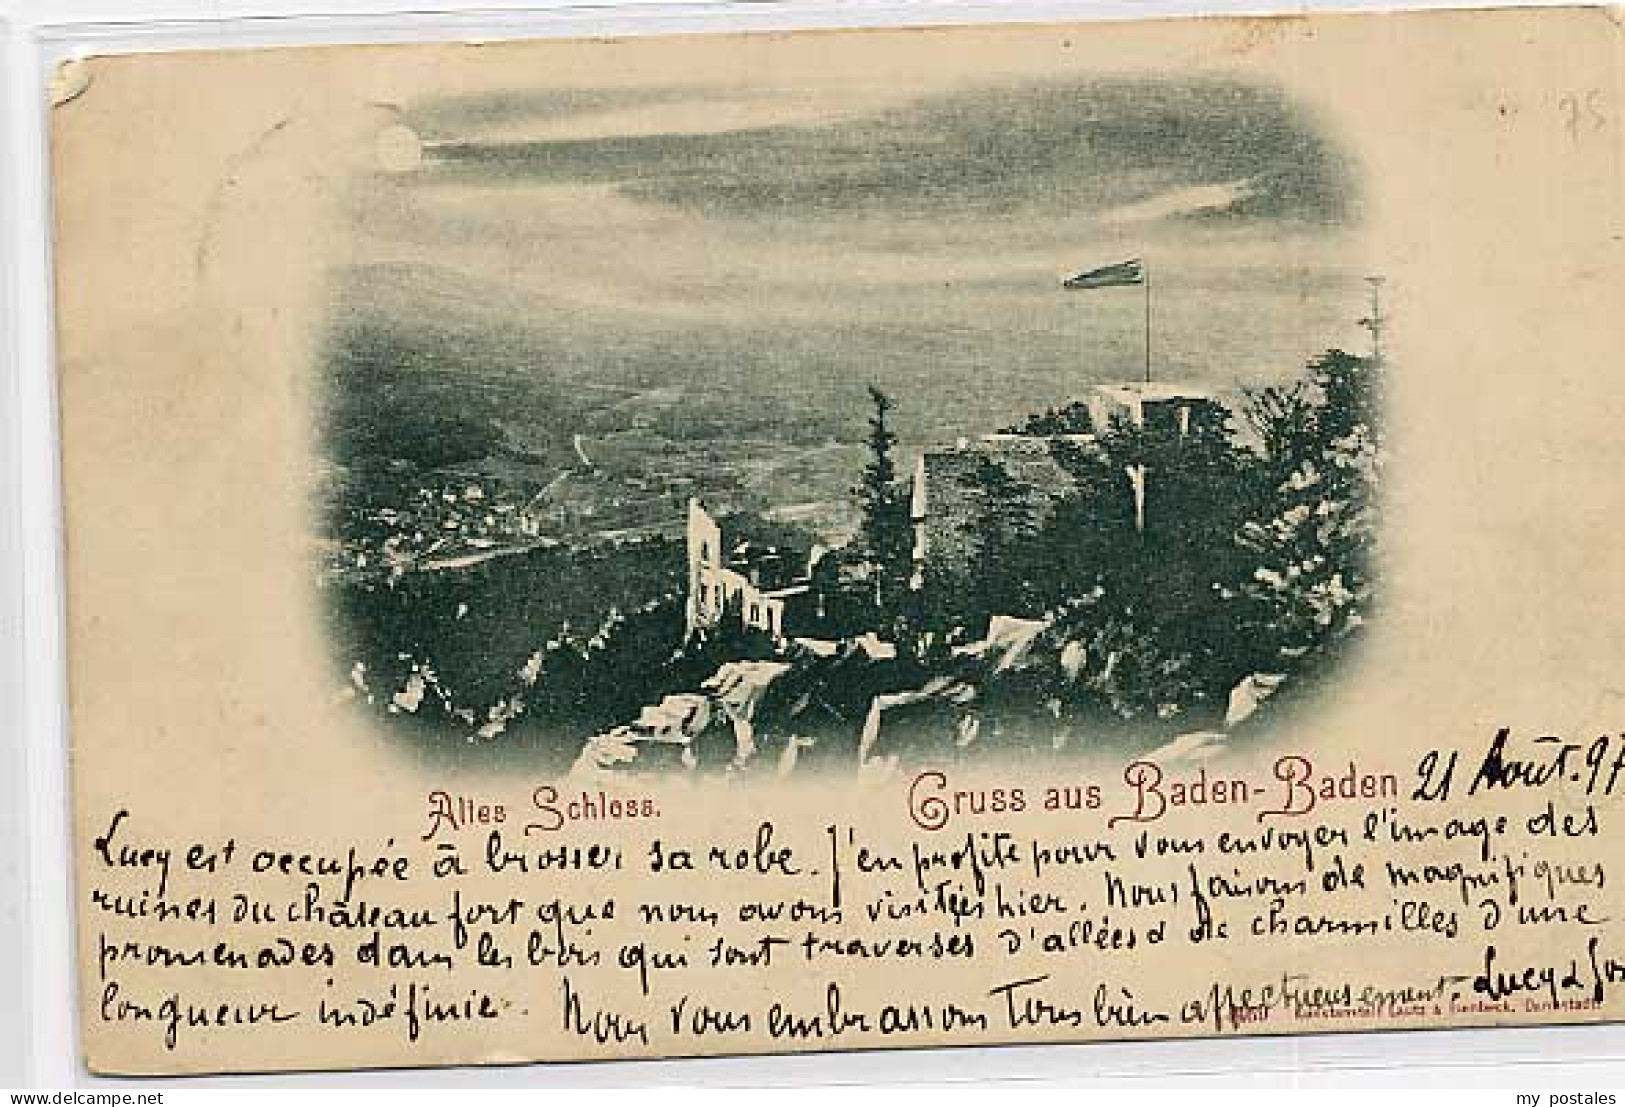 75
Altes Schloss.
Gruss aus Baden-Baden 21 Août. 97
Lucy est occupée à brosser sa robe. J'en profite pour vous envoyer l'image des
ruines du château fort que nous avons visitées hier. Nous faisons de magnifiques
promenades dans les bois qui sont traversés d'allées & de charmilles d'une
longueur indéfinie. Nous vous embrassons Tous bien affectueusement. Lucy &
Lautz & Darmstadt.
delcampe.net
my_postales